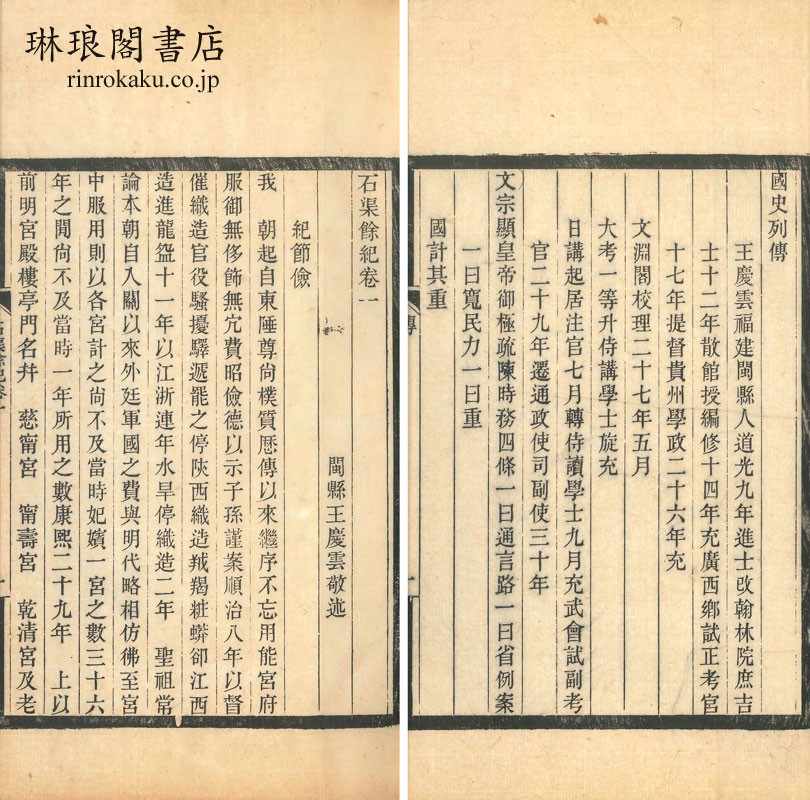 琳琅閣書店
rinrokaku.co.jp
國史列傳
王慶雲福建閩縣人道光九年進士改翰林院庶吉
士十二年散館授編修十四年充廣西鄉試正考官
十七年提督貴州學政二十六年充
文淵閣校理二十七年五月
大考一等升侍講學士旋充
日講起居注官七月轉侍讀學士九月充武會試副考
官二十九年遷通政使司副使三十年
文宗顯皇帝御極疏陳時務四條一曰通言路一曰省例案
一曰寬民力一曰重
國計其重
傳
石渠餘紀卷一
閩縣王慶雲敬述
紀節儉
我 朝起自東陲尊尚樸質厯傳以來繼序不忘用能宮府
服御無侈飾無宂費昭儉德以示子孫謹案順治八年以督
催織造官役騷擾驛遞罷之停陝西織造羢羯粧蟒卻江西
造進龍盌十一年以江浙連年水旱停織造二年 聖祖常
論本朝自入關以來外廷軍國之費與明代略相仿彿至宮
中服用則以各宮計之尚不及當時妃嬪一宮之數三十六
年之閒尚不及當時一年所用之數康熙二十九年 上以
前明宮殿樓亭門名幷 慈甯宮 甯壽宮 乾清宮及老